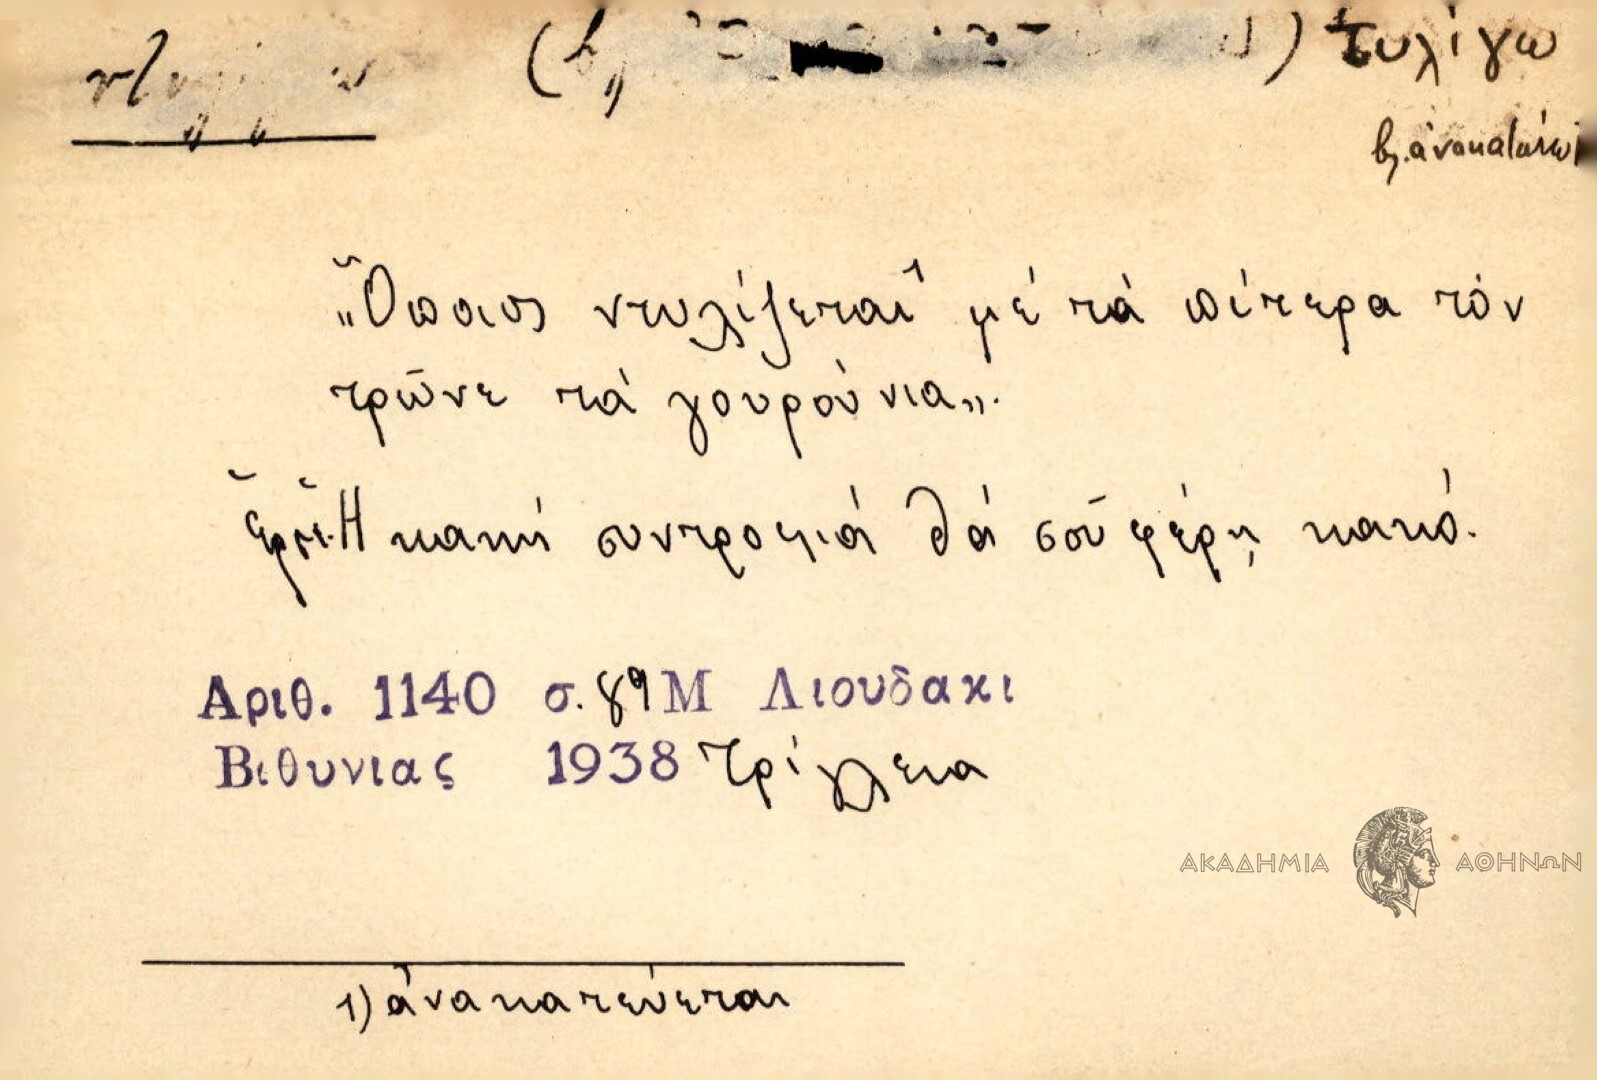 τυλίγω
βλ. ἀνακατεύω
„Ὅποιος ντυλίζεται¹ μέ τά πίτερα τόν
τρῶνε τά γουρούνια„.
Ἑρμ. Ἡ κακή συντροφιά θά σοῦ φέρῃ κακό.
Αριθ. 1140 σ. 89 Μ Λιουδακι
Βιθυνιας 1938 Τρίγλεια
ΑΚΑΔΗΜΙΑ ΑΘΗΝΩΝ
1) ἀνακατεύεται